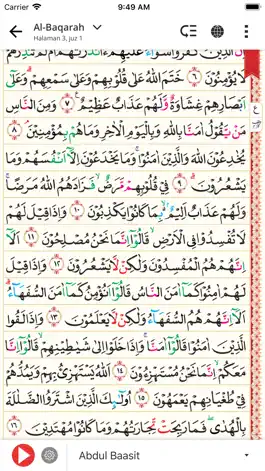 Carrier
9:49 AM
Al-Baqarah
Halaman 3, juz 1
لَا يُؤْمِنُوْنَ ۝٦ خَتَمَ اللّٰهُ عَلٰى قُلُوْبِهِمْ وَعَلٰى سَمْعِهِمْ ؕ وَعَلٰٓى
اَبْصَارِهِمْ غِشَاوَةٌ وَّلَهُمْ عَذَابٌ عَظِيْمٌ ۝٧ وَمِنَ النَّاسِ
مَنْ يَّقُوْلُ اٰمَنَّا بِاللّٰهِ وَبِالْيَوْمِ الْاٰخِرِ وَمَا هُمْ بِمُؤْمِنِيْنَ ۝٨
يُخٰدِعُوْنَ اللّٰهَ وَالَّذِيْنَ اٰمَنُوْا ۚ وَمَا يَخْدَعُوْنَ اِلَّآ اَنْفُسَهُمْ وَمَا
يَشْعُرُوْنَ ۝٩ فِيْ قُلُوْبِهِمْ مَّرَضٌ ۙ فَزَادَهُمُ اللّٰهُ مَرَضًا ۚ
وَلَهُمْ عَذَابٌ اَلِيْمٌ ۢ بِمَا كَانُوْا يَكْذِبُوْنَ ۝١٠ وَاِذَا قِيْلَ لَهُمْ
لَا تُفْسِدُوْا فِى الْاَرْضِ ۙ قَالُوْٓا اِنَّمَا نَحْنُ مُصْلِحُوْنَ ۝١١ اَلَآ
اِنَّهُمْ هُمُ الْمُفْسِدُوْنَ وَلٰكِنْ لَّا يَشْعُرُوْنَ ۝١٢ وَاِذَا قِيْلَ
لَهُمْ اٰمِنُوْا كَمَآ اٰمَنَ النَّاسُ قَالُوْٓا اَنُؤْمِنُ كَمَآ اٰمَنَ السُّفَهَآءُ ؕ
اَلَآ اِنَّهُمْ هُمُ السُّفَهَآءُ وَلٰكِنْ لَّا يَعْلَمُوْنَ ۝١٣ وَاِذَا لَقُوا
الَّذِيْنَ اٰمَنُوْا قَالُوْٓا اٰمَنَّا ۚ وَاِذَا خَلَوْا اِلٰى شَيٰطِيْنِهِمْ ۙ قَالُوْٓا اِنَّا
مَعَكُمْ ۙ اِنَّمَا نَحْنُ مُسْتَهْزِءُوْنَ ۝١٤ اَللّٰهُ يَسْتَهْزِئُ بِهِمْ وَيَمُدُّهُمْ
فِيْ طُغْيَانِهِمْ يَعْمَهُوْنَ ۝١٥ اُولٰٓئِكَ الَّذِيْنَ اشْتَرَوُا الضَّلٰلَةَ
بِالْهُدٰى ۪ فَمَا رَبِحَتْ تِّجَارَتُهُمْ وَمَا كَانُوْا مُهْتَدِيْنَ ۝١٦
Abdul Baasit